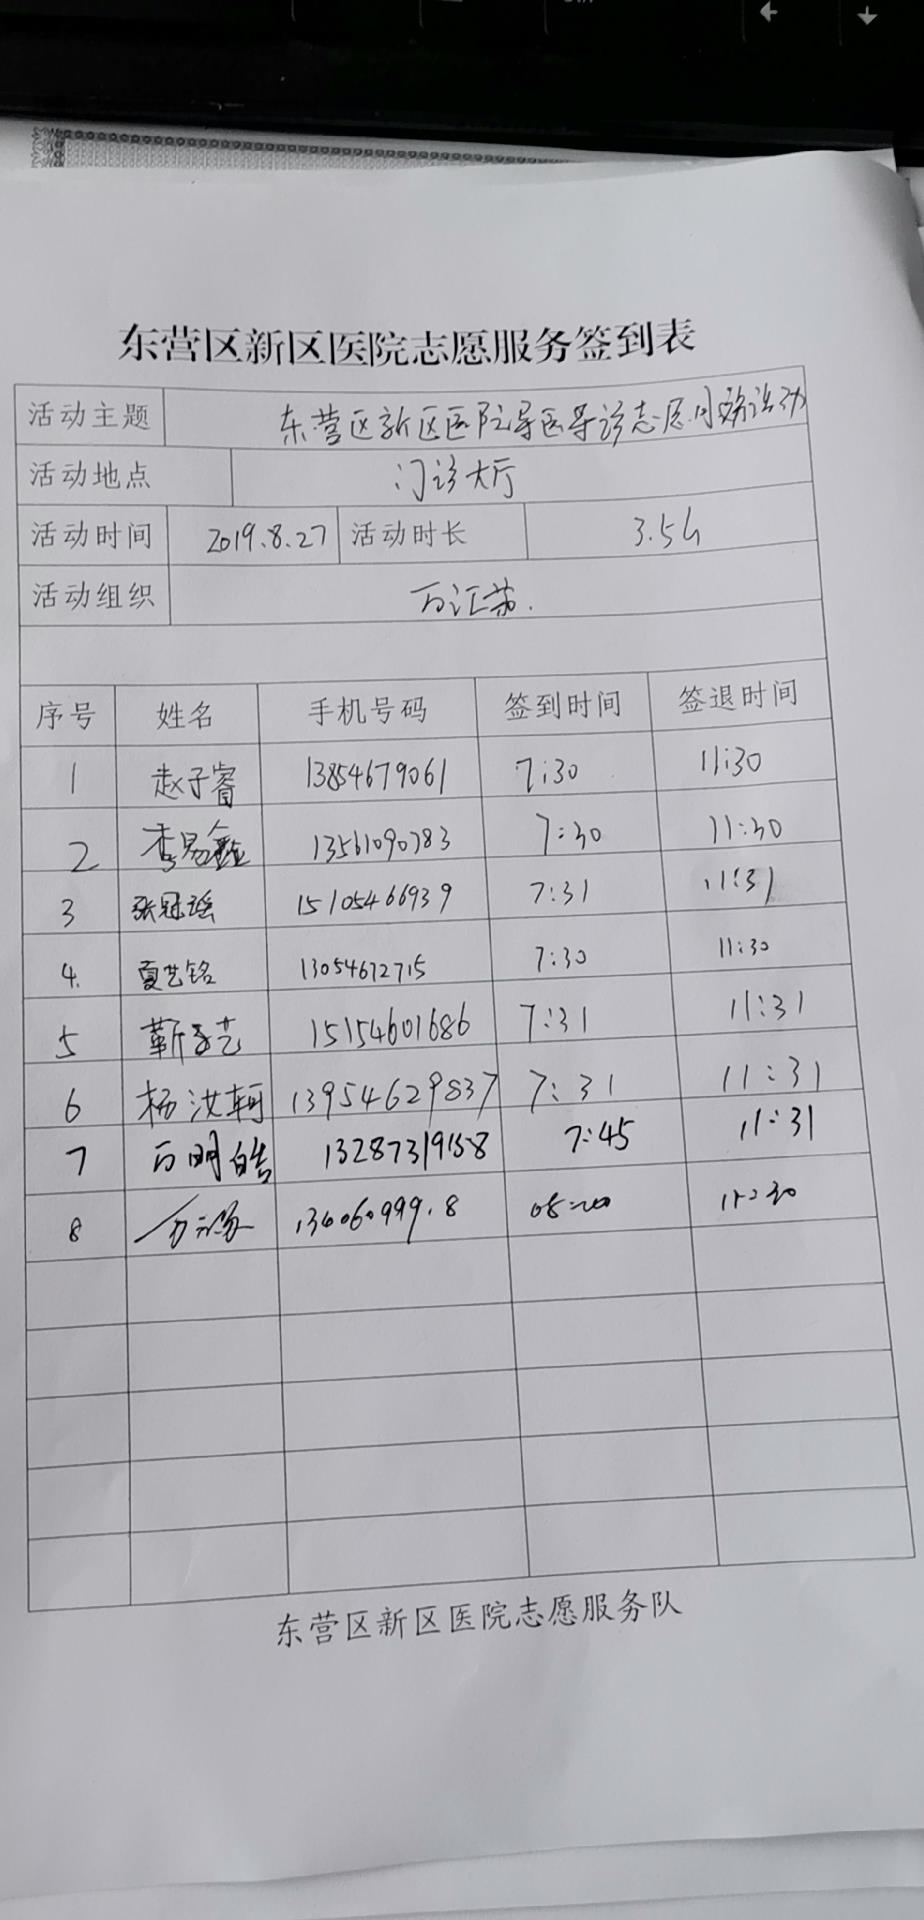 东营区新区医院志愿服务签到表
活动主题 东营区新区医院导医导诊志愿服务活动
活动地点 门诊大厅
活动时间 2019.8.27 活动时长 3.5h
活动组织
序号 姓名 手机号码 签到时间 签退时间
1 赵子睿 13854679061 7:30 11:30
2 李易鑫 13561090783 7:30 11:30
3 张冠瑶 15105466939 7:31 11:31
4. 夏艺铭 13054672715 7:30 11:30
5 靳子艺 15154601686 7:31 11:31
6 杨汝轲 13954629837 7:31 11:31
7 13287319158 7:45 11:31
8 11:30
东营区新区医院志愿服务队